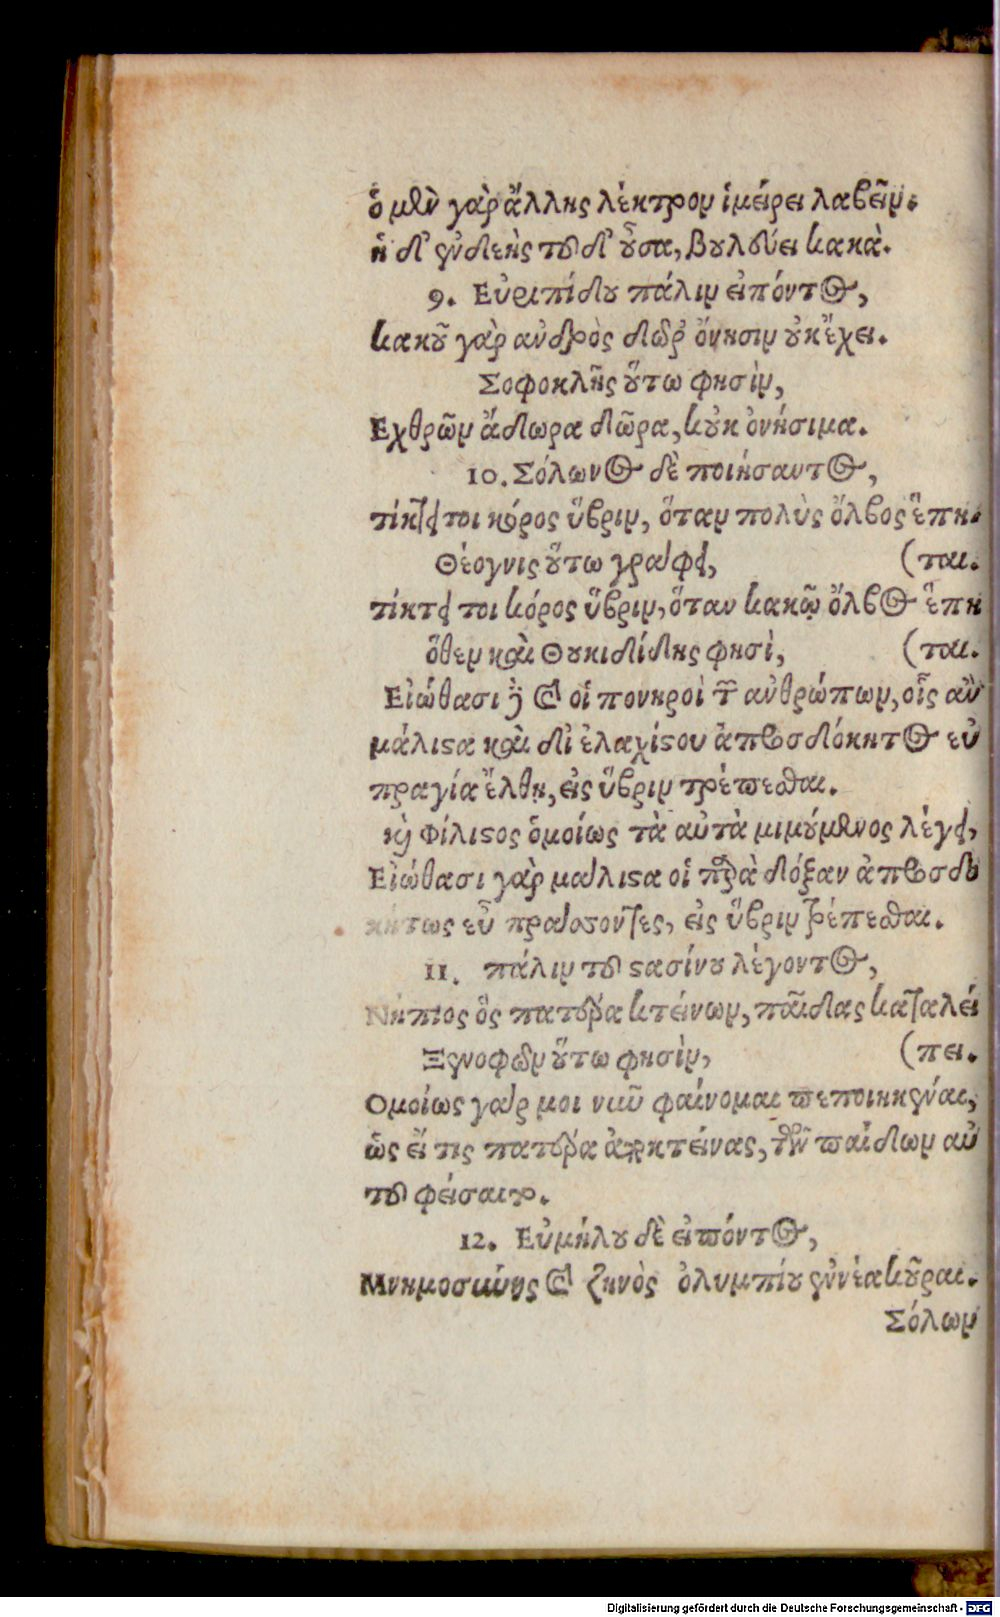 ὁ μὲν γὰρ ἄλλης λέκτρον ἱμείρει λαβεῖν.
ἡ δ' ἐνδεὴς τοῦδ' οὖσα, βουλεύει κακὰ.
9. Εὐριπίδου πάλιν εἰπόντος,
κακοῦ γὰρ ἀνδρὸς δῶρ' ὄνησιν οὐκ ἔχει.
Σοφοκλῆς οὕτω φησὶν,
Εχθρῶν ἄδωρα δῶρα, κοὐκ ὀνήσιμα.
10. Σόλωνος δὲ ποιήσαντος,
τίκτει τοι κόρος ὕβριν, ὅταν πολὺς ὄλβος ἕπη-
Θέογνις οὕτω γράφει, (ται.
τίκτει τοι κόρος ὕβριν, ὅταν κακῷ ὄλβος ἕπη
ὅθεν καὶ Θουκιδίδης φησὶ, (ται.
Εἰώθασι δὲ καὶ οἱ πονηροὶ τῶν ἀνθρώπων, οἷς ἂν
μάλιστα καὶ δι' ἐλαχίστου ἀπροσδόκητος εὐ
πραγία ἔλθῃ, εἰς ὕβριν τρέπεσθαι.
καὶ Φίλιστος ὁμοίως τὰ αὐτὰ μιμούμενος λέγει,
Εἰώθασι γὰρ μάλιστα οἱ παρὰ δόξαν ἀπροσδο
κήτως εὖ πράσσοντες, εἰς ὕβριν τρέπεσθαι.
11. πάλιν τοῦ στασίνου λέγοντος,
Νήπιος ὃς πατέρα κτείνων, παῖδας καταλεί
Ξενοφῶν οὕτω φησὶν, (πει.
Ομοίως γάρ μοι νῦν φαίνομαι πεποιηκέναι,
ὡς εἴ τις πατέρα ἀποκτείνας, τῶν παίδων αὐ
τοῦ φείσαιτο.
12. Εὐμήλου δὲ εἰπόντος,
Μνημοσύνης καὶ ζηνὸς ὀλυμπίου ἐννέα κοῦραι.
Σόλων
Digitalisierung gefördert durch die Deutsche Forschungsgemeinschaft - DFG